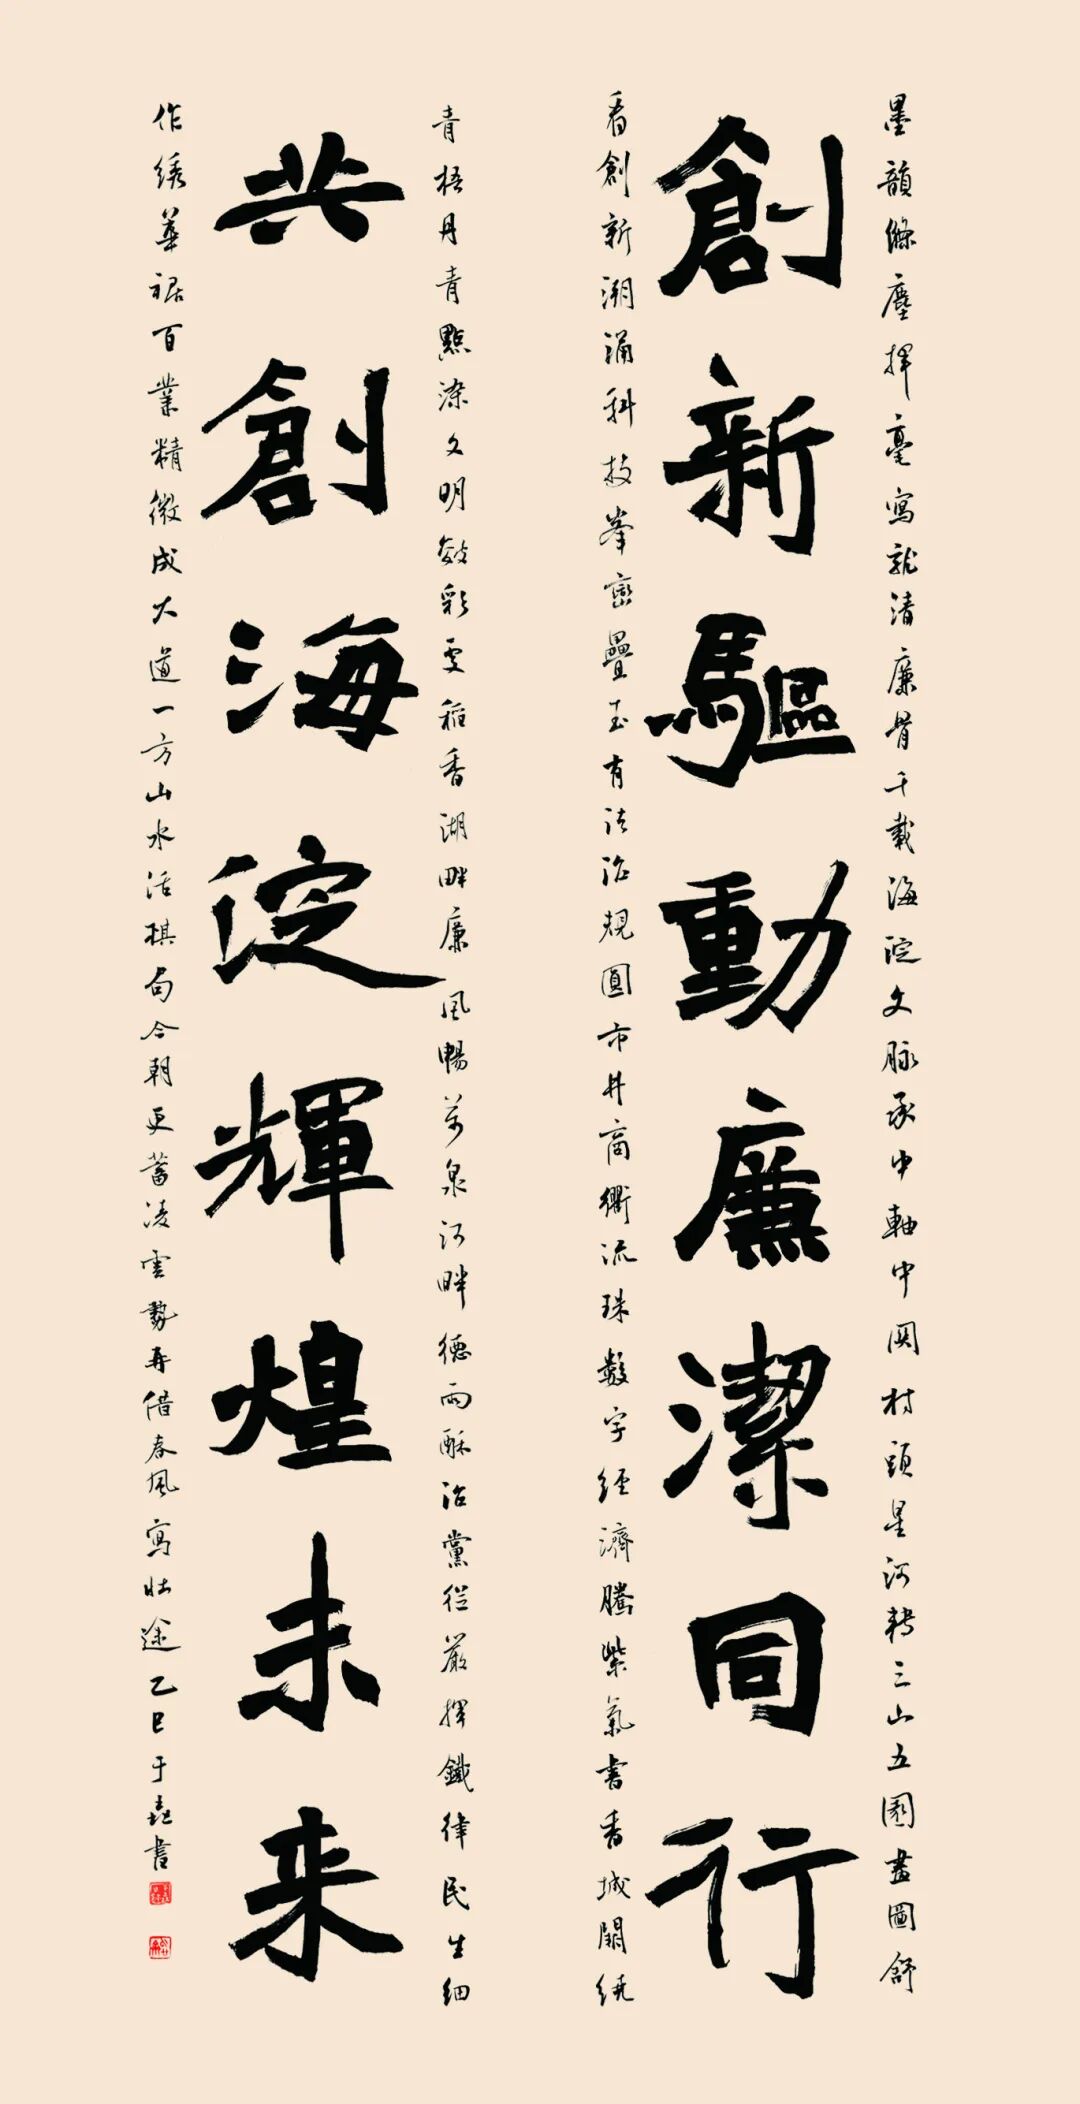 墨韻滌塵揮毫寫就清廉骨千載海淀文脉承中軸中関村頭星河轉三山五園畫圖舒
創新驅動廉潔同行
看創新潮涌科技峯巒疊玉有法治規圓市井商衢流珠數字經濟騰紫氣書香城闕繞
青梧丹青點染文明彩雯稻香湖畔廉風暢萬泉河畔德雨酥治黨從嚴揮鐵律民生細
共創海淀輝煌未来
作綉華裾百業精微成大道一方山水活棋局今朝更蓄凌雲勢再借春風寫壯途乙巳于書